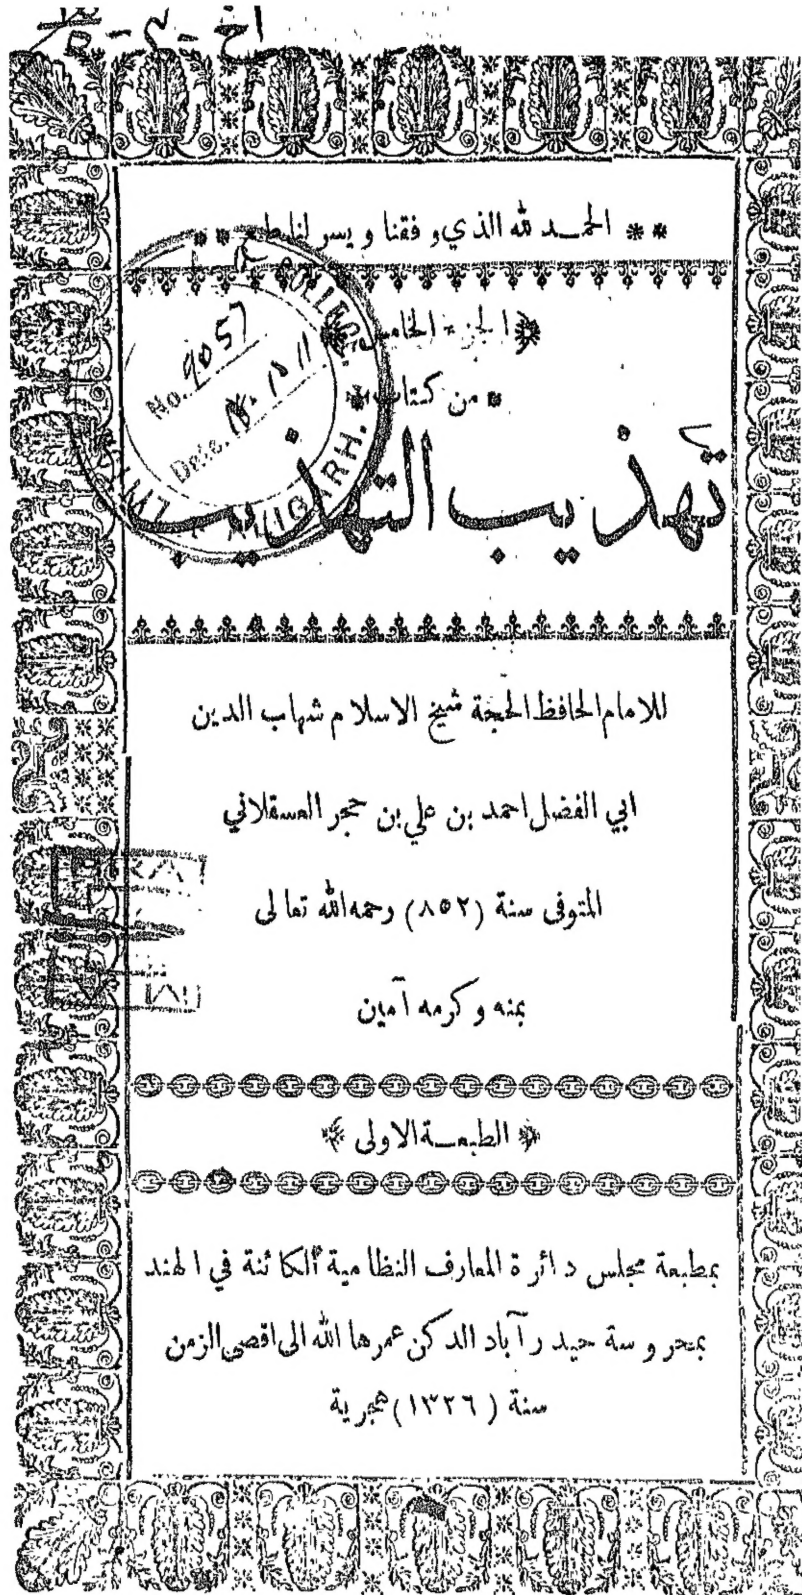 الحمد لله الذي وفقنا ويسر لنا طبع
الجزء الخامس
من كتاب
تهذيب التهذيب
للامام الحافظ الحجة شيخ الاسلام شهاب الدين
ابي الفضل احمد بن علي بن حجر العسقلاني
المتوفى سنة (٨٥٢) رحمه الله تعالى
بمنه وكرمه آمين
الطبعة الاولى
بمطبعة مجلس دائرة المعارف النظامية الكائنة في الهند
بمحروسة حيدرآباد الدكن عمرها الله الى اقصى الزمن
سنة (١٣٢٦) هجرية
No. 9057
Date.
ALIGARH.